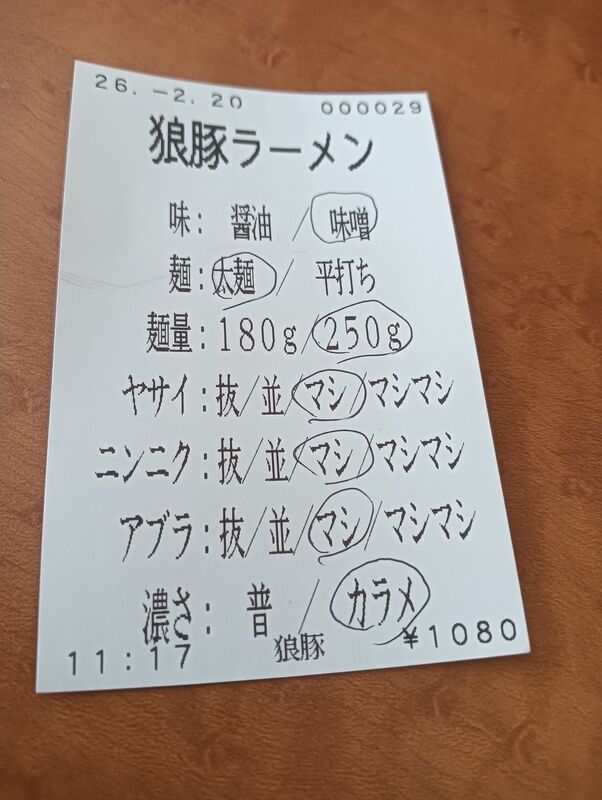 26.-2.20 000029
狼豚ラーメン
味: 醤油 / 味噌
麺: 太麺 / 平打ち
麺量:180g/250g
ヤサイ:抜/並/マシ/マシマシ
ニンニク:抜/並/マシ/マシマシ
アブラ:抜/並/マシ/マシマシ
濃さ: 普 / カラメ
11:17 狼豚 ¥1080